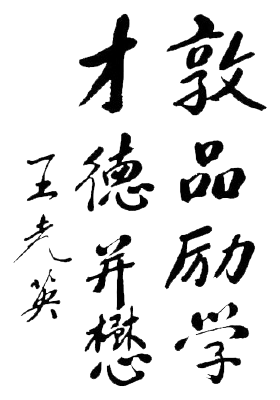 敦品励学
才德并懋
王光英